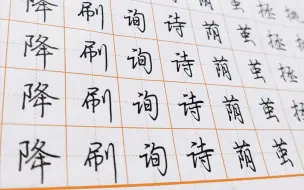 降刷询诗荫茧拯
降刷询诗荫茧拯
降刷询诗荫茧拯
降刷询诗荫茧